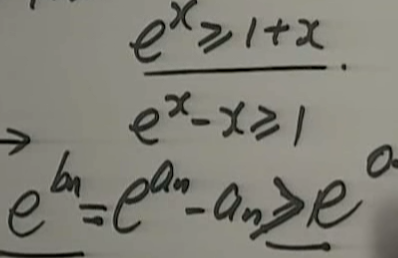 e^x ≥ 1+x
e^x - x ≥ 1
→
e^{b_n} = e^{a_n} - a_n ≥ e